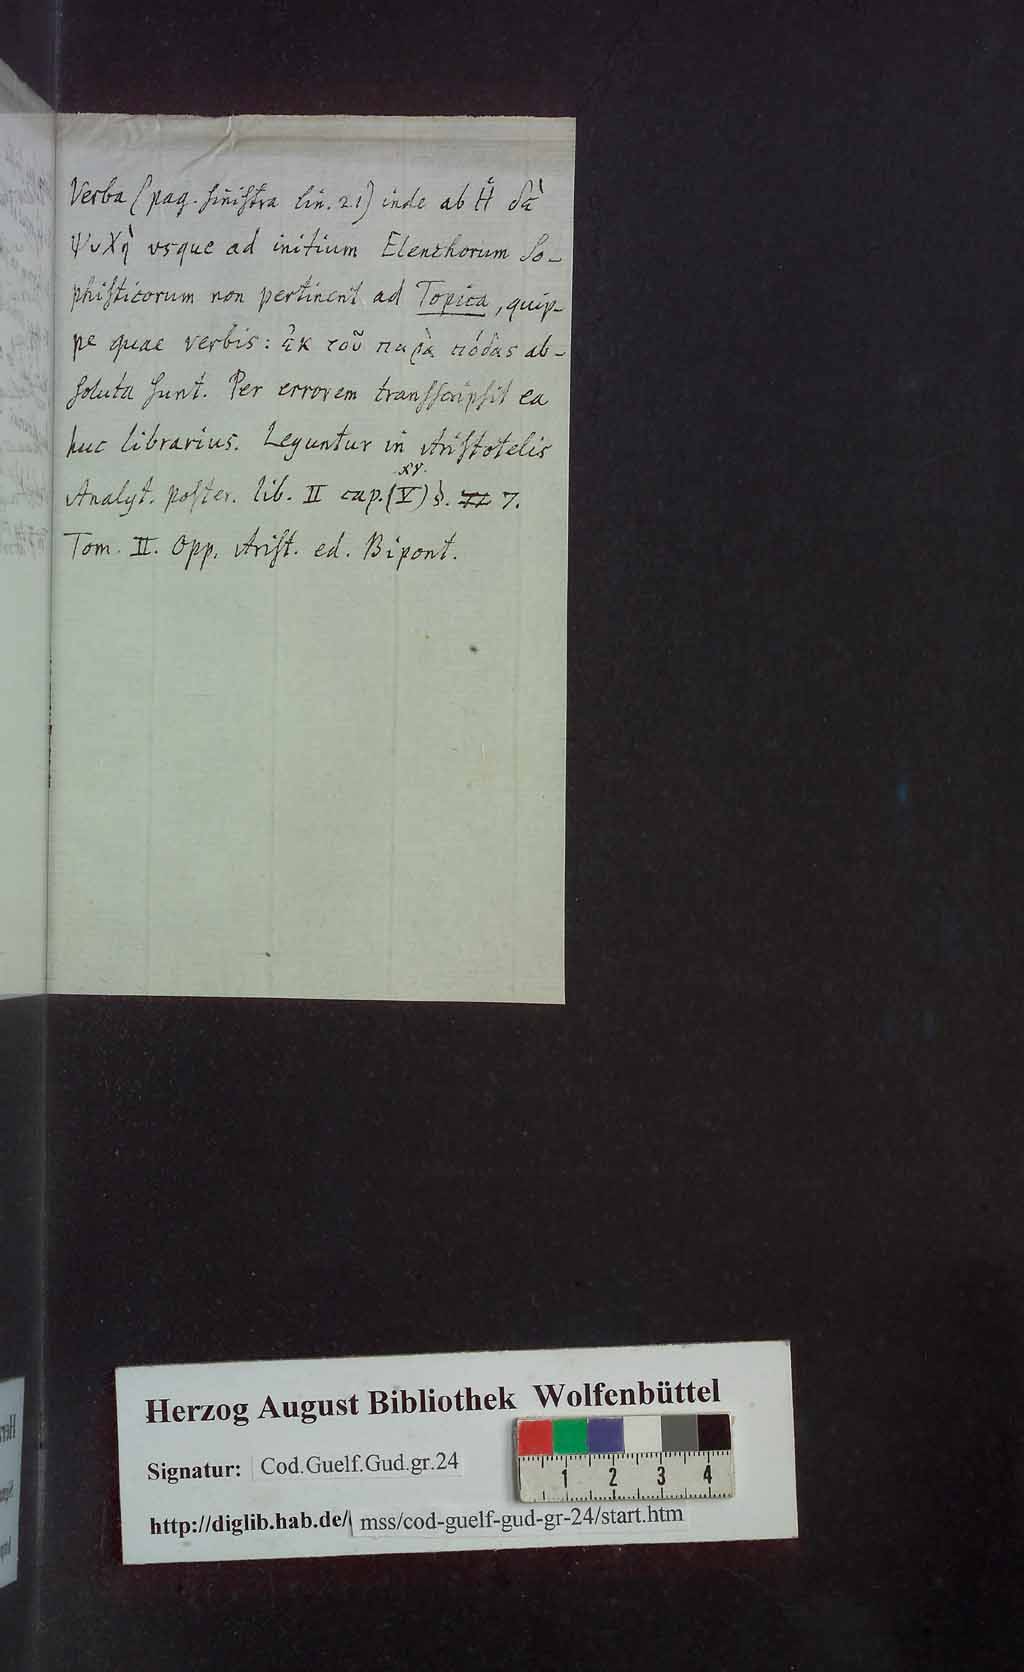 Verba (pag. sinistra lin. 21) inde ab Ἡ δὲ
ψυχὴ vsque ad initium Elenchorum So-
phisticorum non pertinent ad Topica, quip-
pe quae verbis: ἐκ τοῦ παρὰ πόδας ab-
soluta sunt. Per errorem transscripsit ea
huc librarius. Leguntur in Aristotelis
XV.
Analyt. poster. lib. II cap. (V) §. 7.
Tom. II. Opp. Arist. ed. Bipont.
Herzog August Bibliothek Wolfenbüttel
Signatur: Cod.Guelf.Gud.gr.24
http://diglib.hab.de/ mss/cod-guelf-gud-gr-24/start.htm
1 2 3 4